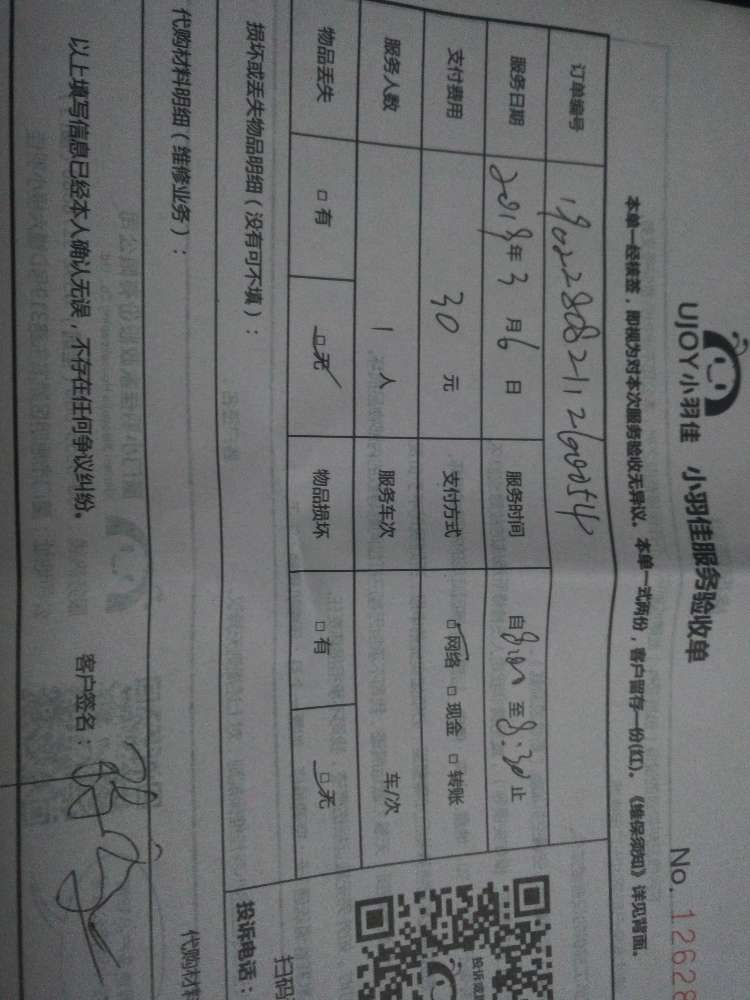 UJOY小羽佳 小羽佳服务验收单
No. 12628
本单一经核签，即视为对本次服务验收无异议。本单一式两份，客户留存一份(红)。《维保须知》详见背面。
订单编号 190228082112600054
服务日期 2019年3月6日 服务时间 自8:00至8:30止
支付费用 30元 支付方式 □网络 □现金 □转账
服务人数 1人 服务车次 车/次
物品丢失 □有 □无 物品损坏 □有 □无
损坏或丢失物品明细（没有可不填）：
代购材料明细（维修业务）：
以上填写信息已经本人确认无误，不存在任何争议纠纷。 客户签名：
扫码
投诉电话：
代购材料